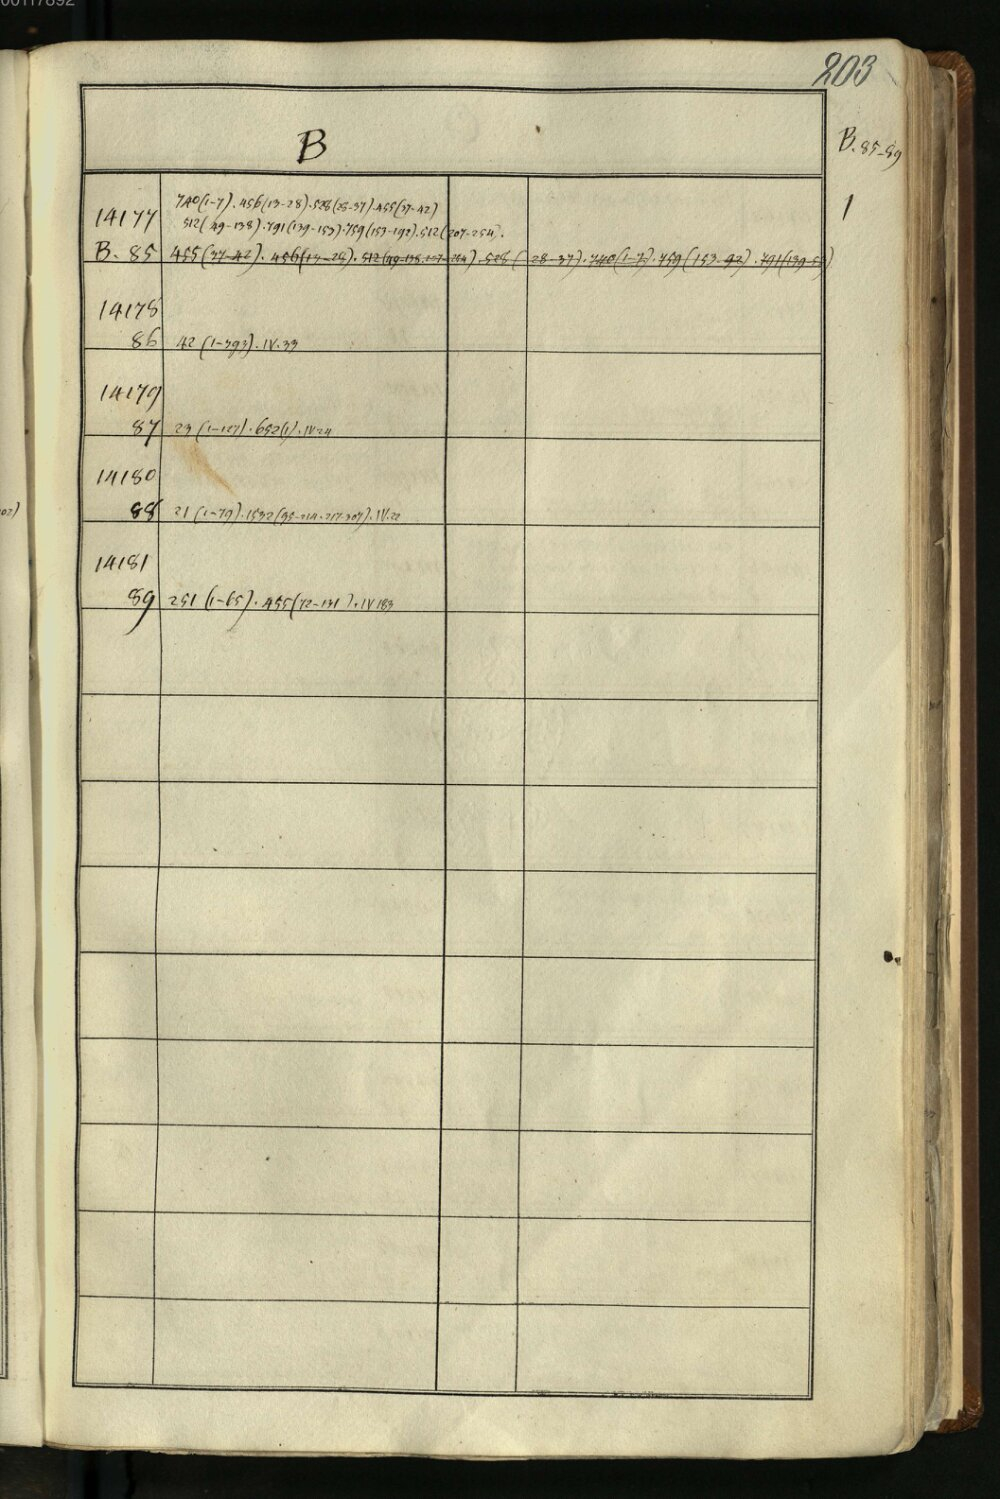 203
B
B. 85-89
1
740(1-7). 456(13-28). 528(28-37). 455(37-42)
14177
512(49-138). 791(139-153). 759(153-192). 512(207-254).
B. 85 455(37-42). 456(13-28). 512(49-138. 207-254). 528(28-37). 740(1-7). 759(153-92). 791(139-53)
14178
86 42(1-393). IV. 33
14179
87 23(1-127). 652(1). IV 24
14180
88 21(1-79). 1532(95-214. 217-307). IV. 22
14181
89 251(1-65). 455(72-131). IV 183